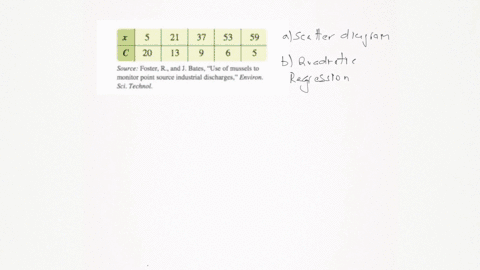 x 5 21 37 53 59
C 20 13 9 6 5
Source: Foster, R., and J. Bates, "Use of mussels to
monitor point source industrial discharges," Environ.
Sci. Technol.
a) Scatter diagram
b) Quadratic
Regression